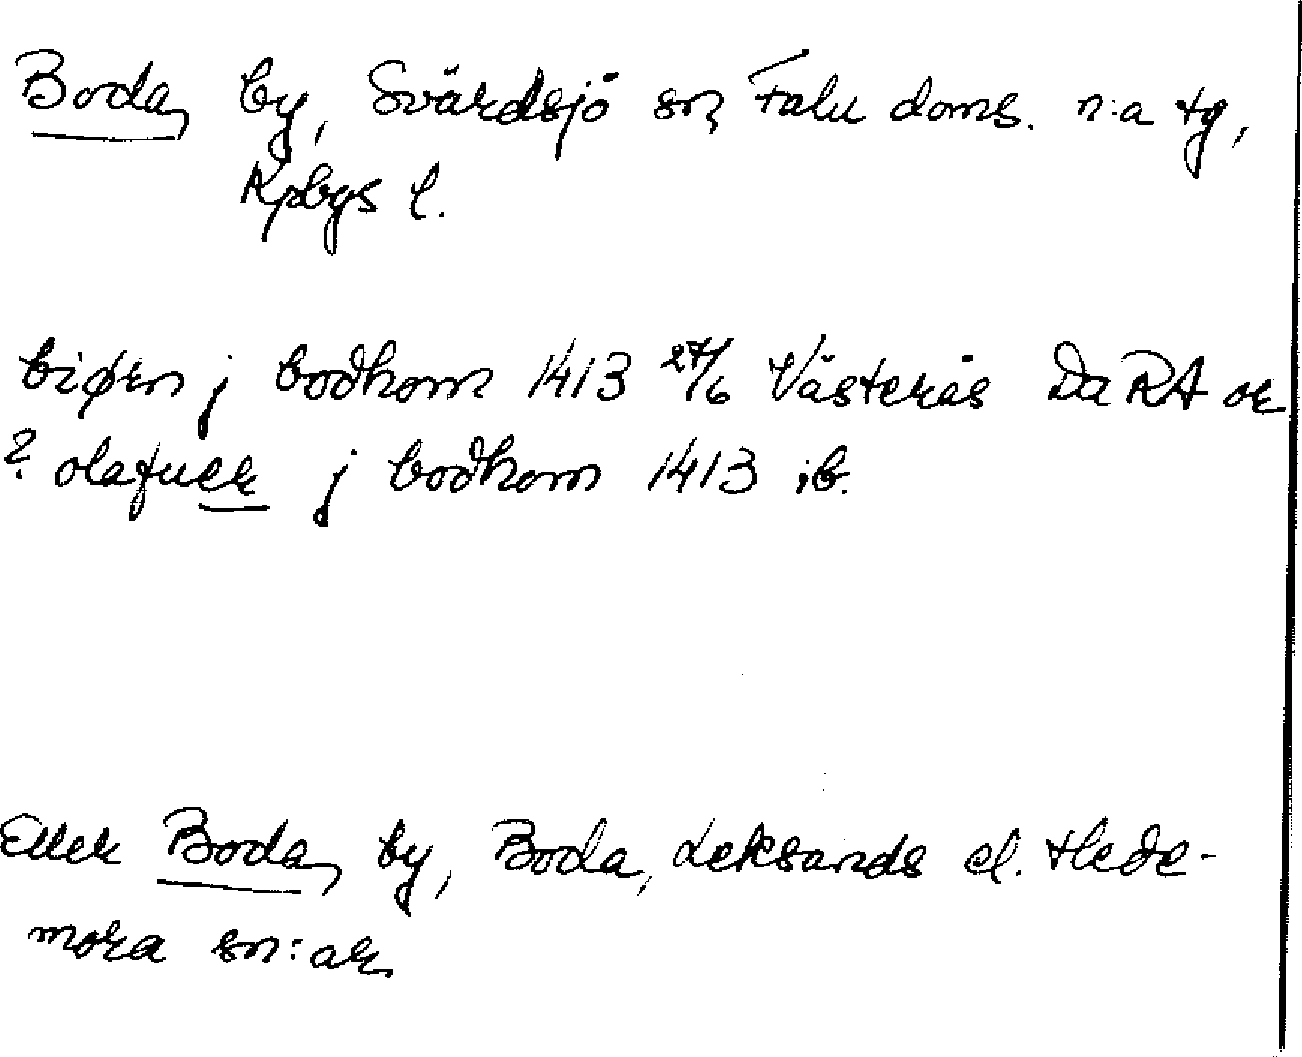 Boda, by, Svärdsjö sn, Falu doms. n:a tg,
Kpbgs l.
biørn j bodhom 1413 27/6 Västerås Da RA or
? olafuer j bodhom 1413 ib.
Eller Boda, by, Boda, Leksands el. Hede-
mora sn:ar